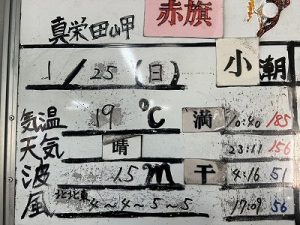 赤旗
真栄田岬
1/25(日) 小潮
気温 19℃ 満 10:40 185
天気 晴 23:11 156
波 1.5m 干 4:16 51
風 北北東 4〜4〜5〜5 17:09 56